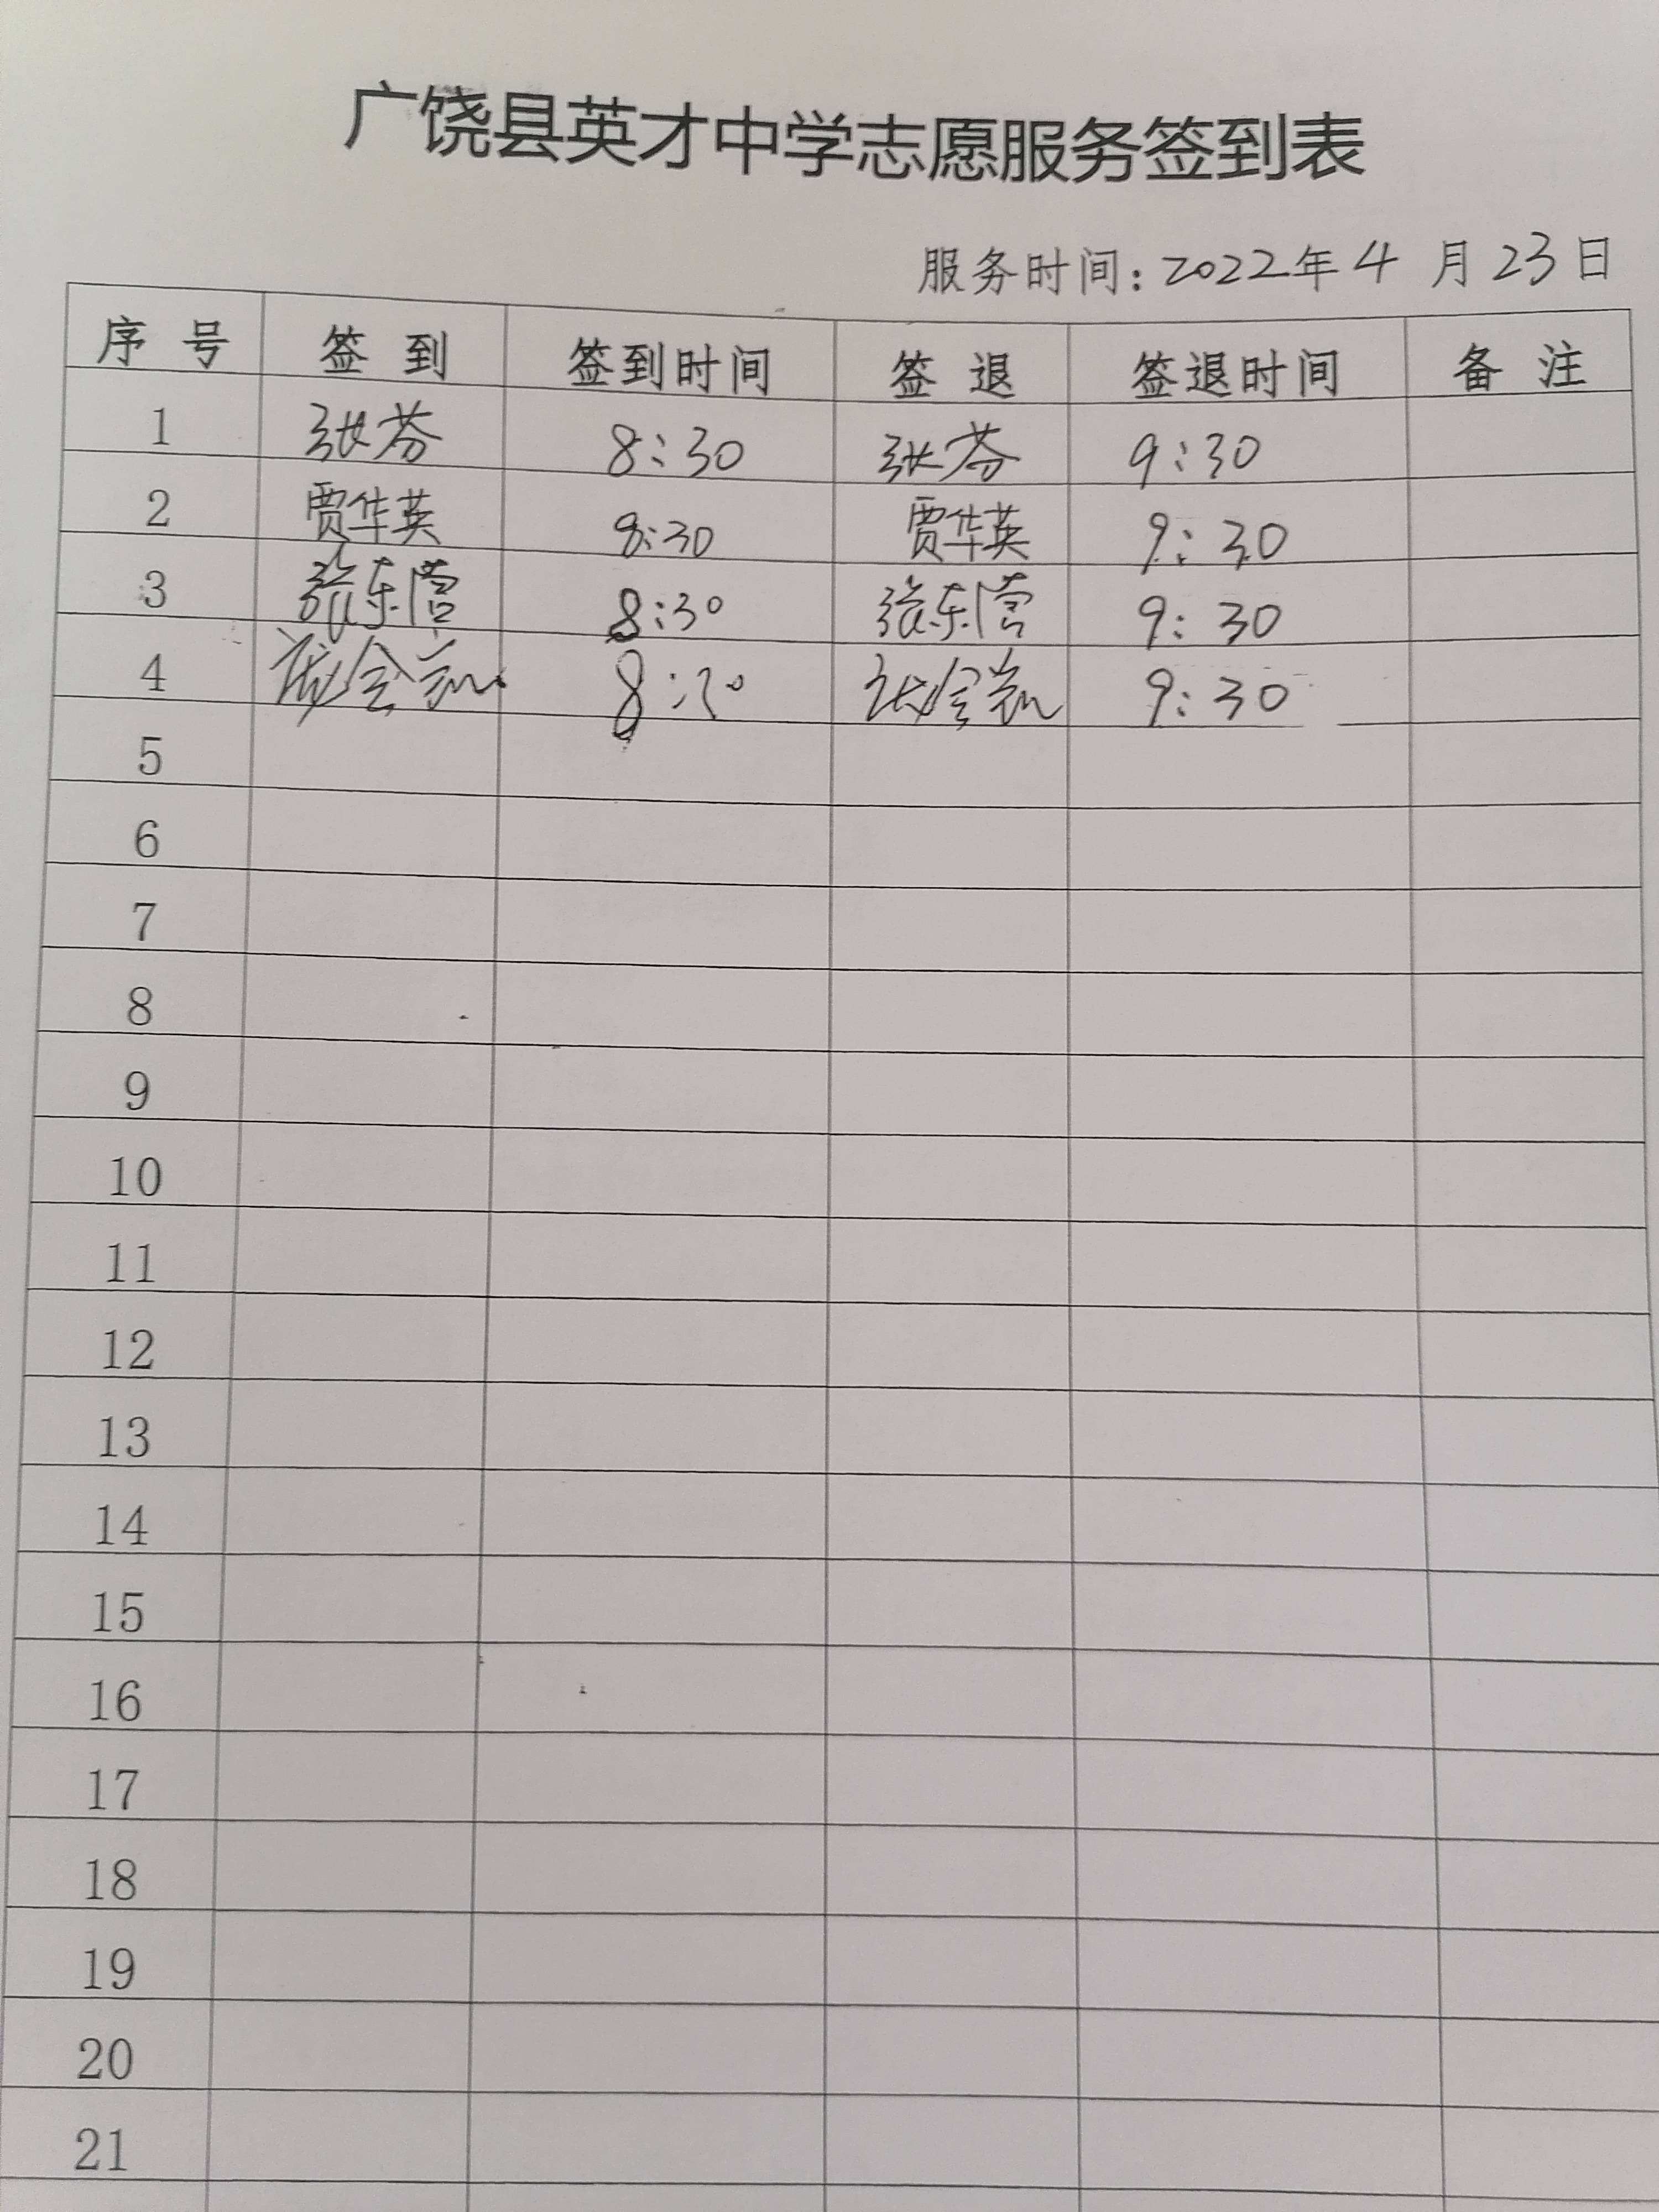 广饶县英才中学志愿服务签到表
服务时间：2022年4月23日
序号 签到 签到时间 签退 签退时间 备注
1 张芬 8:30 张芬 9:30
2 贾华英 8:30 贾华英 9:30
3 张东营 8:30 张东营 9:30
4 8:30 9:30
5
6
7
8
9
10
11
12
13
14
15
16
17
18
19
20
21